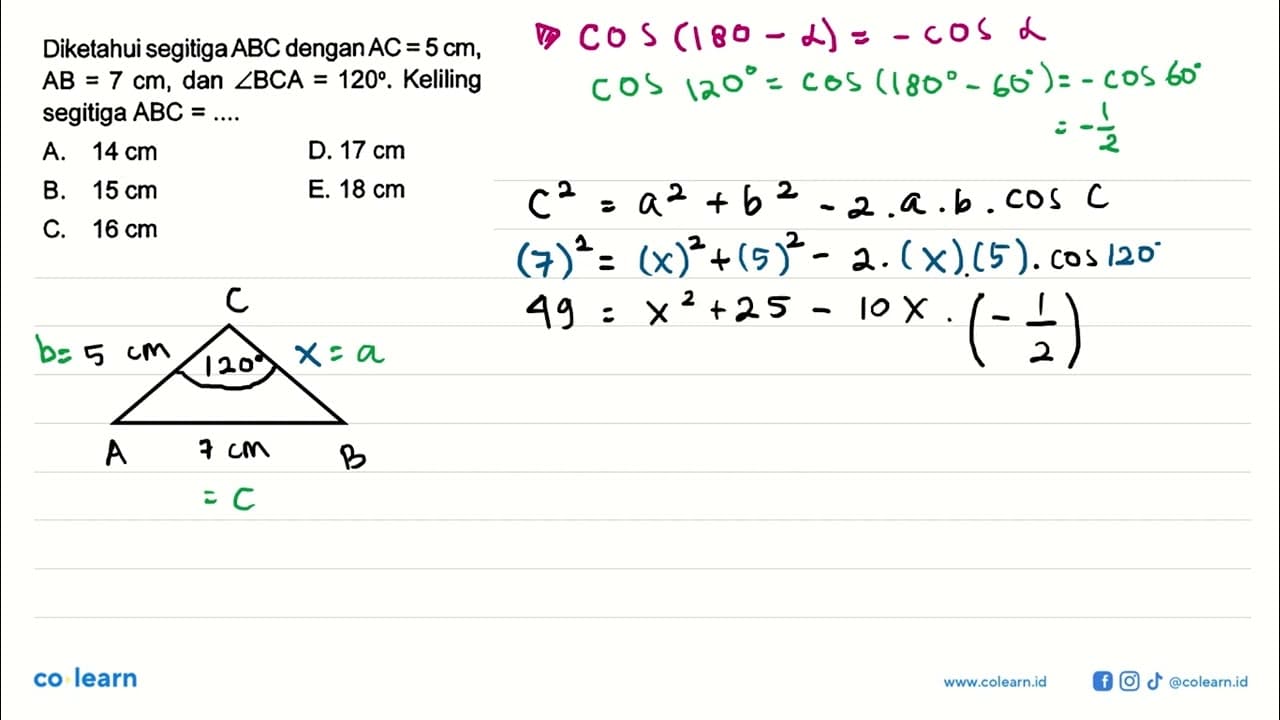 Diketahui segitiga ABC dengan AC = 5 cm,
AB = 7 cm, dan ∠BCA = 120º. Keliling
segitiga ABC = ....
A. 14 cm
B. 15 cm
C. 16 cm
D. 17 cm
E. 18 cm
cos (180 - α) = - cos α
cos 120° = cos (180° - 60°) = - cos 60°
= - 1/2
c² = a² + b² - 2 . a . b . cos C
(7)² = (x)² + (5)² - 2 . (x).(5) . cos 120°
49 = x² + 25 - 10 x . (- 1/2)
C
b = 5 cm
120°
x = a
A
7 cm
B
= c
co learn
www.colearn.id
@colearn.id